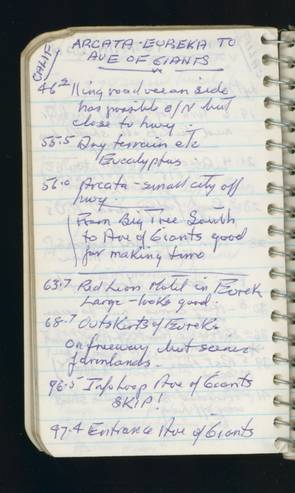 CALIF
ARCATA-EUREKA TO
AVE OF GIANTS
46.2 King road ocean side
has possible O/N but
close to hwy
55.5 Dry terrain etc
Eucalyptus
56.0 Arcata - small city off
hwy.
From Big Tree South
to Ave of Giants good
for making time
63.7 Red Lion Motel in Eurek
Large - looks good.
68.7 Outskirts of Eureka
on freeway but scenic
farmlands.
96.5 Info Loop Ave of Giants
SKIP!
97.4 Entrance Ave of Giants